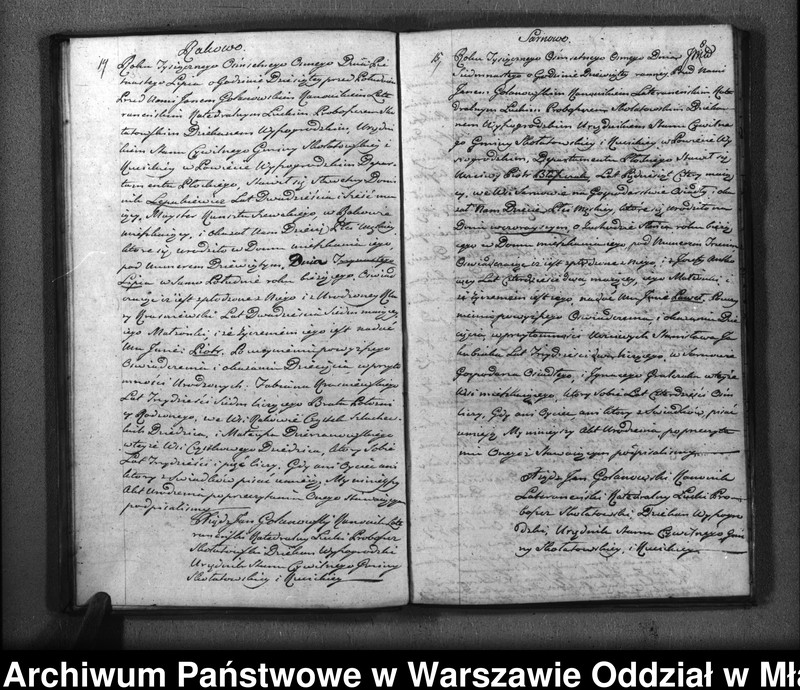 Rakowo.
14
Roku Tysiącznego Ośmsetnego Osmego Dnia
Lipca o Godzinie Dziesiątej przed Południem
Przed Nami Janem Golanowskim Kanonikiem
Katedralnym Łuckim Proboszczem
Dziekanem Wyszogrodzkim, Urzędni-
kiem Stanu Cywilnego Gminy Skołatowskiej i
w Powiecie Wyszogrodzkim Depar-
tamencie Płockiego, Stawił się Sławetny Domi-
nik Lat Dwadzieścia i Sześć ma-
jący, Majster Kunsztu Szewskiego, w Rakowie
mieszkający, i okazał Nam Dziecię Płci Męskiej,
które się urodziło w Domu mieszkania jego,
pod Numerem Dziewiątym, Dnia Trzynastego
Lipca w Samo Południe roku bieżącego, Oświad-
czając iż jest spłodzone z Niego i z Urodzonej
Lat Dwadzieścia Siedm mającej
jego Małżonki i że życzeniem jego jest nadać
Mu Imię Piotr. Po uczynieniu powyższego
Oświadczenia i okazaniu Dziecięcia w przyto-
mności Urodzonych: Fabiana
Lat Trzydzieści i Siedm liczącego Brata
Rodzonego, we Wsi Rakowie Cząstek Szlachec-
kich Dziedzica, i Mateusza
w tejże Wsi Cząstkowego Dziedzica, który Sobie
Lat Trzydzieści i pięć liczy. Gdy ani Ojciec ani
który z Świadków pisać umieją, My niniejszy
Akt Urodzenia po przeczytaniu Onego Stawającym
podpisaliśmy.
Xiądz Jan Golanowski Kanonik Late-
raneński Katedralny Łucki Proboszcz
Skołatowski Dziekan Wyszogrodzki
Urzędnik Stanu Cywilnego Gminy
Skołatowskiej i
Sarnowo.
8
15
Roku Tysiącznego Ośmsetnego Osmego Dnia
Siedmnastego o Godzinie Dziewiątej rannej. Przed Nami
Janem Golanowskim Kanonikiem Lateraneńskim Kate-
dralnym Łuckim Proboszczem Skołatowskim. Dzieka-
nem Wyszogrodzkim Urzędnikiem Stanu Cywilne-
go Gminy Skołatowskiej i w Powiecie Wy-
szogrodzkim, Departamentu Płockiego Stawił się
Uczciwy Piotr Lat Pięćdziesiąt Cztery mają-
cy, we Wsi Sarnowie na Gospodarstwie Osiadły, i oka-
zał Nam Dziecię Płci Męskiej, które się urodziło na
Dniu wczorajszym, o Zachodzie Słońca roku bieżą-
cego w Domu mieszkania jego pod Numerem Trzecim
Oświadczając iż jest spłodzone z Niego, i z
Lat Czterdzieści dwa mającej, jego Małżonki i
że życzeniem jest jego, nadać Mu Imię Paweł. Po uczy-
nieniu powyższego Oświadczenia i okazaniu Dzie-
cięcia, w przytomności Uczciwych Stanisława
Lat Trzydzieści liczącego, w Sarnowie
Gospodarza Osiadłego, i Ignacego w tejże
Wsi mieszkającego, który Sobie Lat Czterdzieści Ośm
liczy, Gdy ani Ojciec ani który z Świadków pisać
umieją My niniejszy Akt Urodzenia po przeczyta-
niu Onego i Stawającym podpisaliśmy.
Xiądz Jan Golanowski Kanonik
Lateraneński Katedralny Łucki Pro-
boszcz Skołatowski Dziekan Wyszogro-
dzki, Urzędnik Stanu Cywilnego Gmi-
ny Skołatowskiej, i
Archiwum Państwowe w Warszawie Oddział w Mła